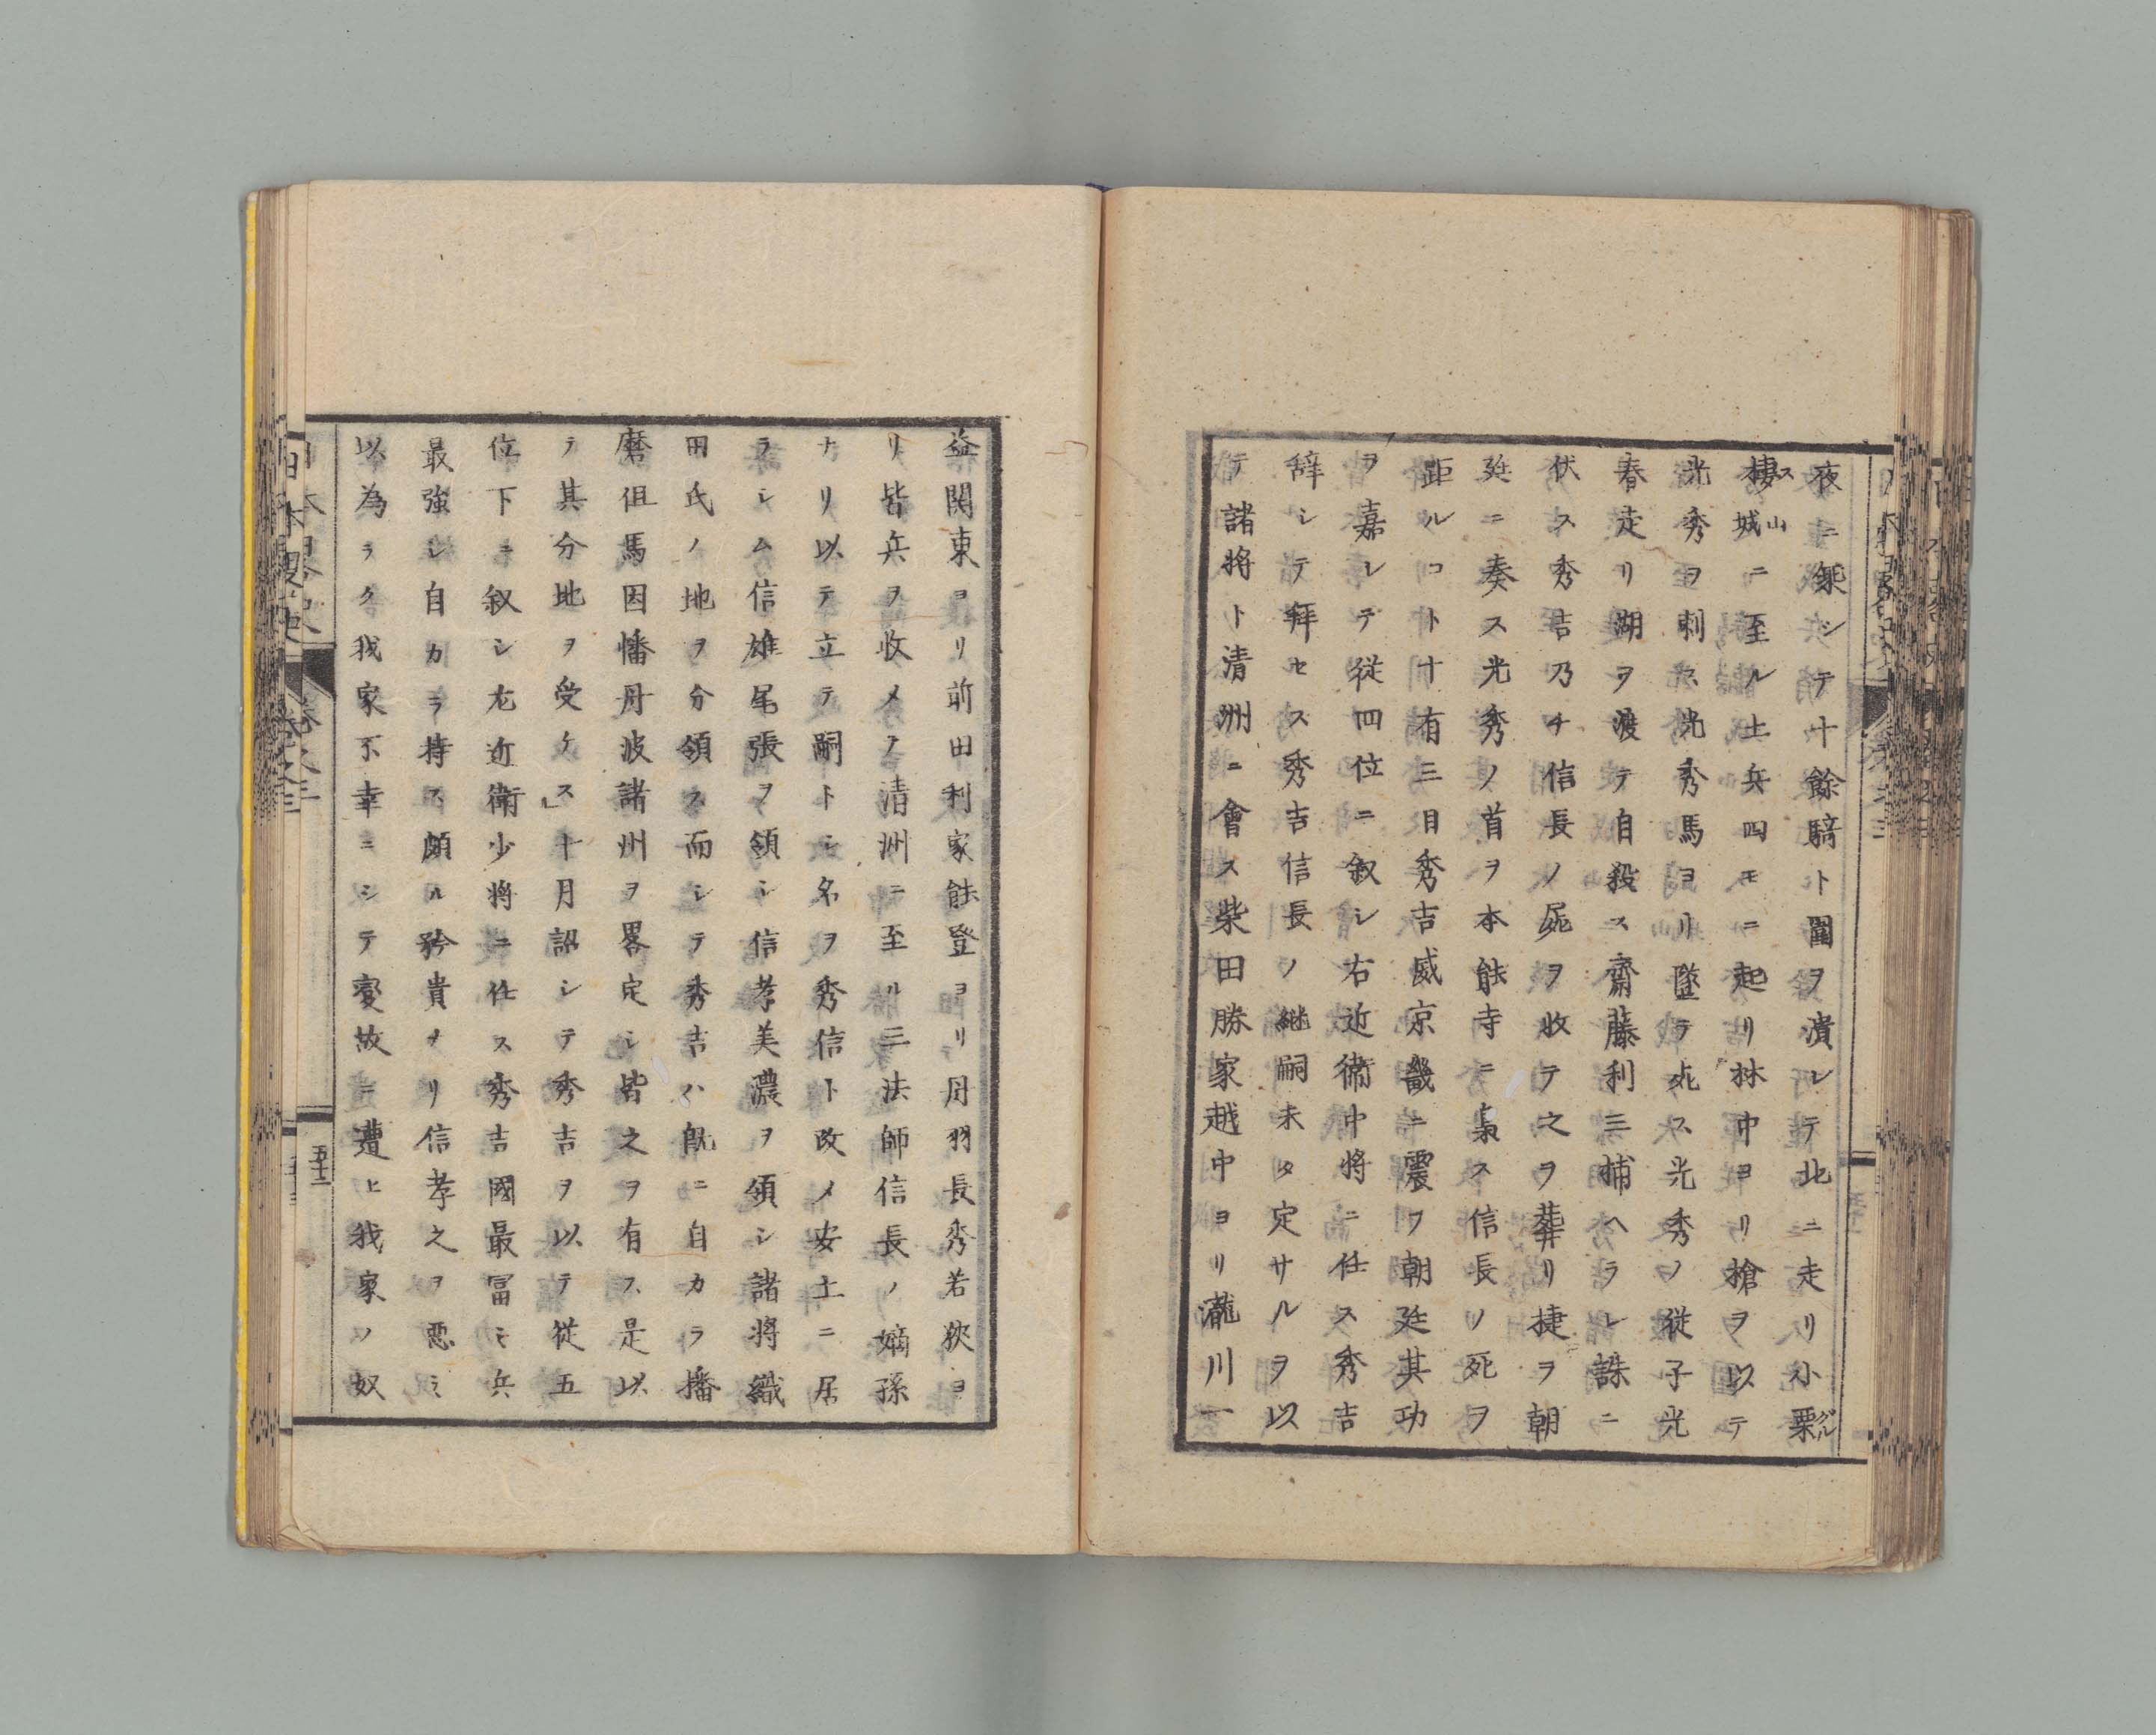 夜ニ乗シテ十餘騎ト圍ヲ潰シテ北ニ走リ小栗クル
棲ス城ニ至ル山土兵四モニ起リ林中ヨリ槍ヲ以テ
光秀ヲ刺ス光秀馬ヨリ墜テ死ス光秀ノ従子光
春走リ湖ヲ渡テ自殺ス齋藤利三捕ヘラレ誅ニ
伏ス秀吉乃チ信長ノ屍ヲ收テ之ヲ葬リ捷ヲ朝
廷ニ奏ス光秀ノ首ヲ本能寺ニ梟ス信長ノ死ヲ
距ルコト十有三日秀吉威京畿ニ震フ朝廷其功
ヲ嘉レテ従四位ニ叙シ右近衛中将ニ任ス秀吉
辞シテ拜セス秀吉信長ノ継嗣未タ定サルヲ以
テ諸将ト清洲ニ會ス柴田勝家越中ヨリ瀧川一
益関東ヨリ前田利家能登ヨリ丹羽長秀若狹ヨ
リ皆兵ヲ收メテ清洲ニ至ル三法師信長ノ嫡孫
ナリ以テ立テ嗣トシ名ヲ秀信ト改メ安土ニ居
ラシム信雄尾張ヲ領シ信孝美濃ヲ領シ諸将織
田氏ノ地ヲ分領ス而シテ秀吉ハ既ニ自カラ播
磨但馬因幡丹波諸州ヲ畧定シ皆之ヲ有ス是以
テ其分地ヲ受ケス」十月詔シテ秀吉ヲ以テ従五
位下ニ叙シ左近衛少将ニ任ス秀吉國最冨ミ兵
最強シ自カラ恃ス頗ル矜貴ナリ信孝之ヲ悪ミ
以為ラク我家不幸ニシテ變故ニ遭ヒ我家ノ奴
日本畧史 卷之三 五十二